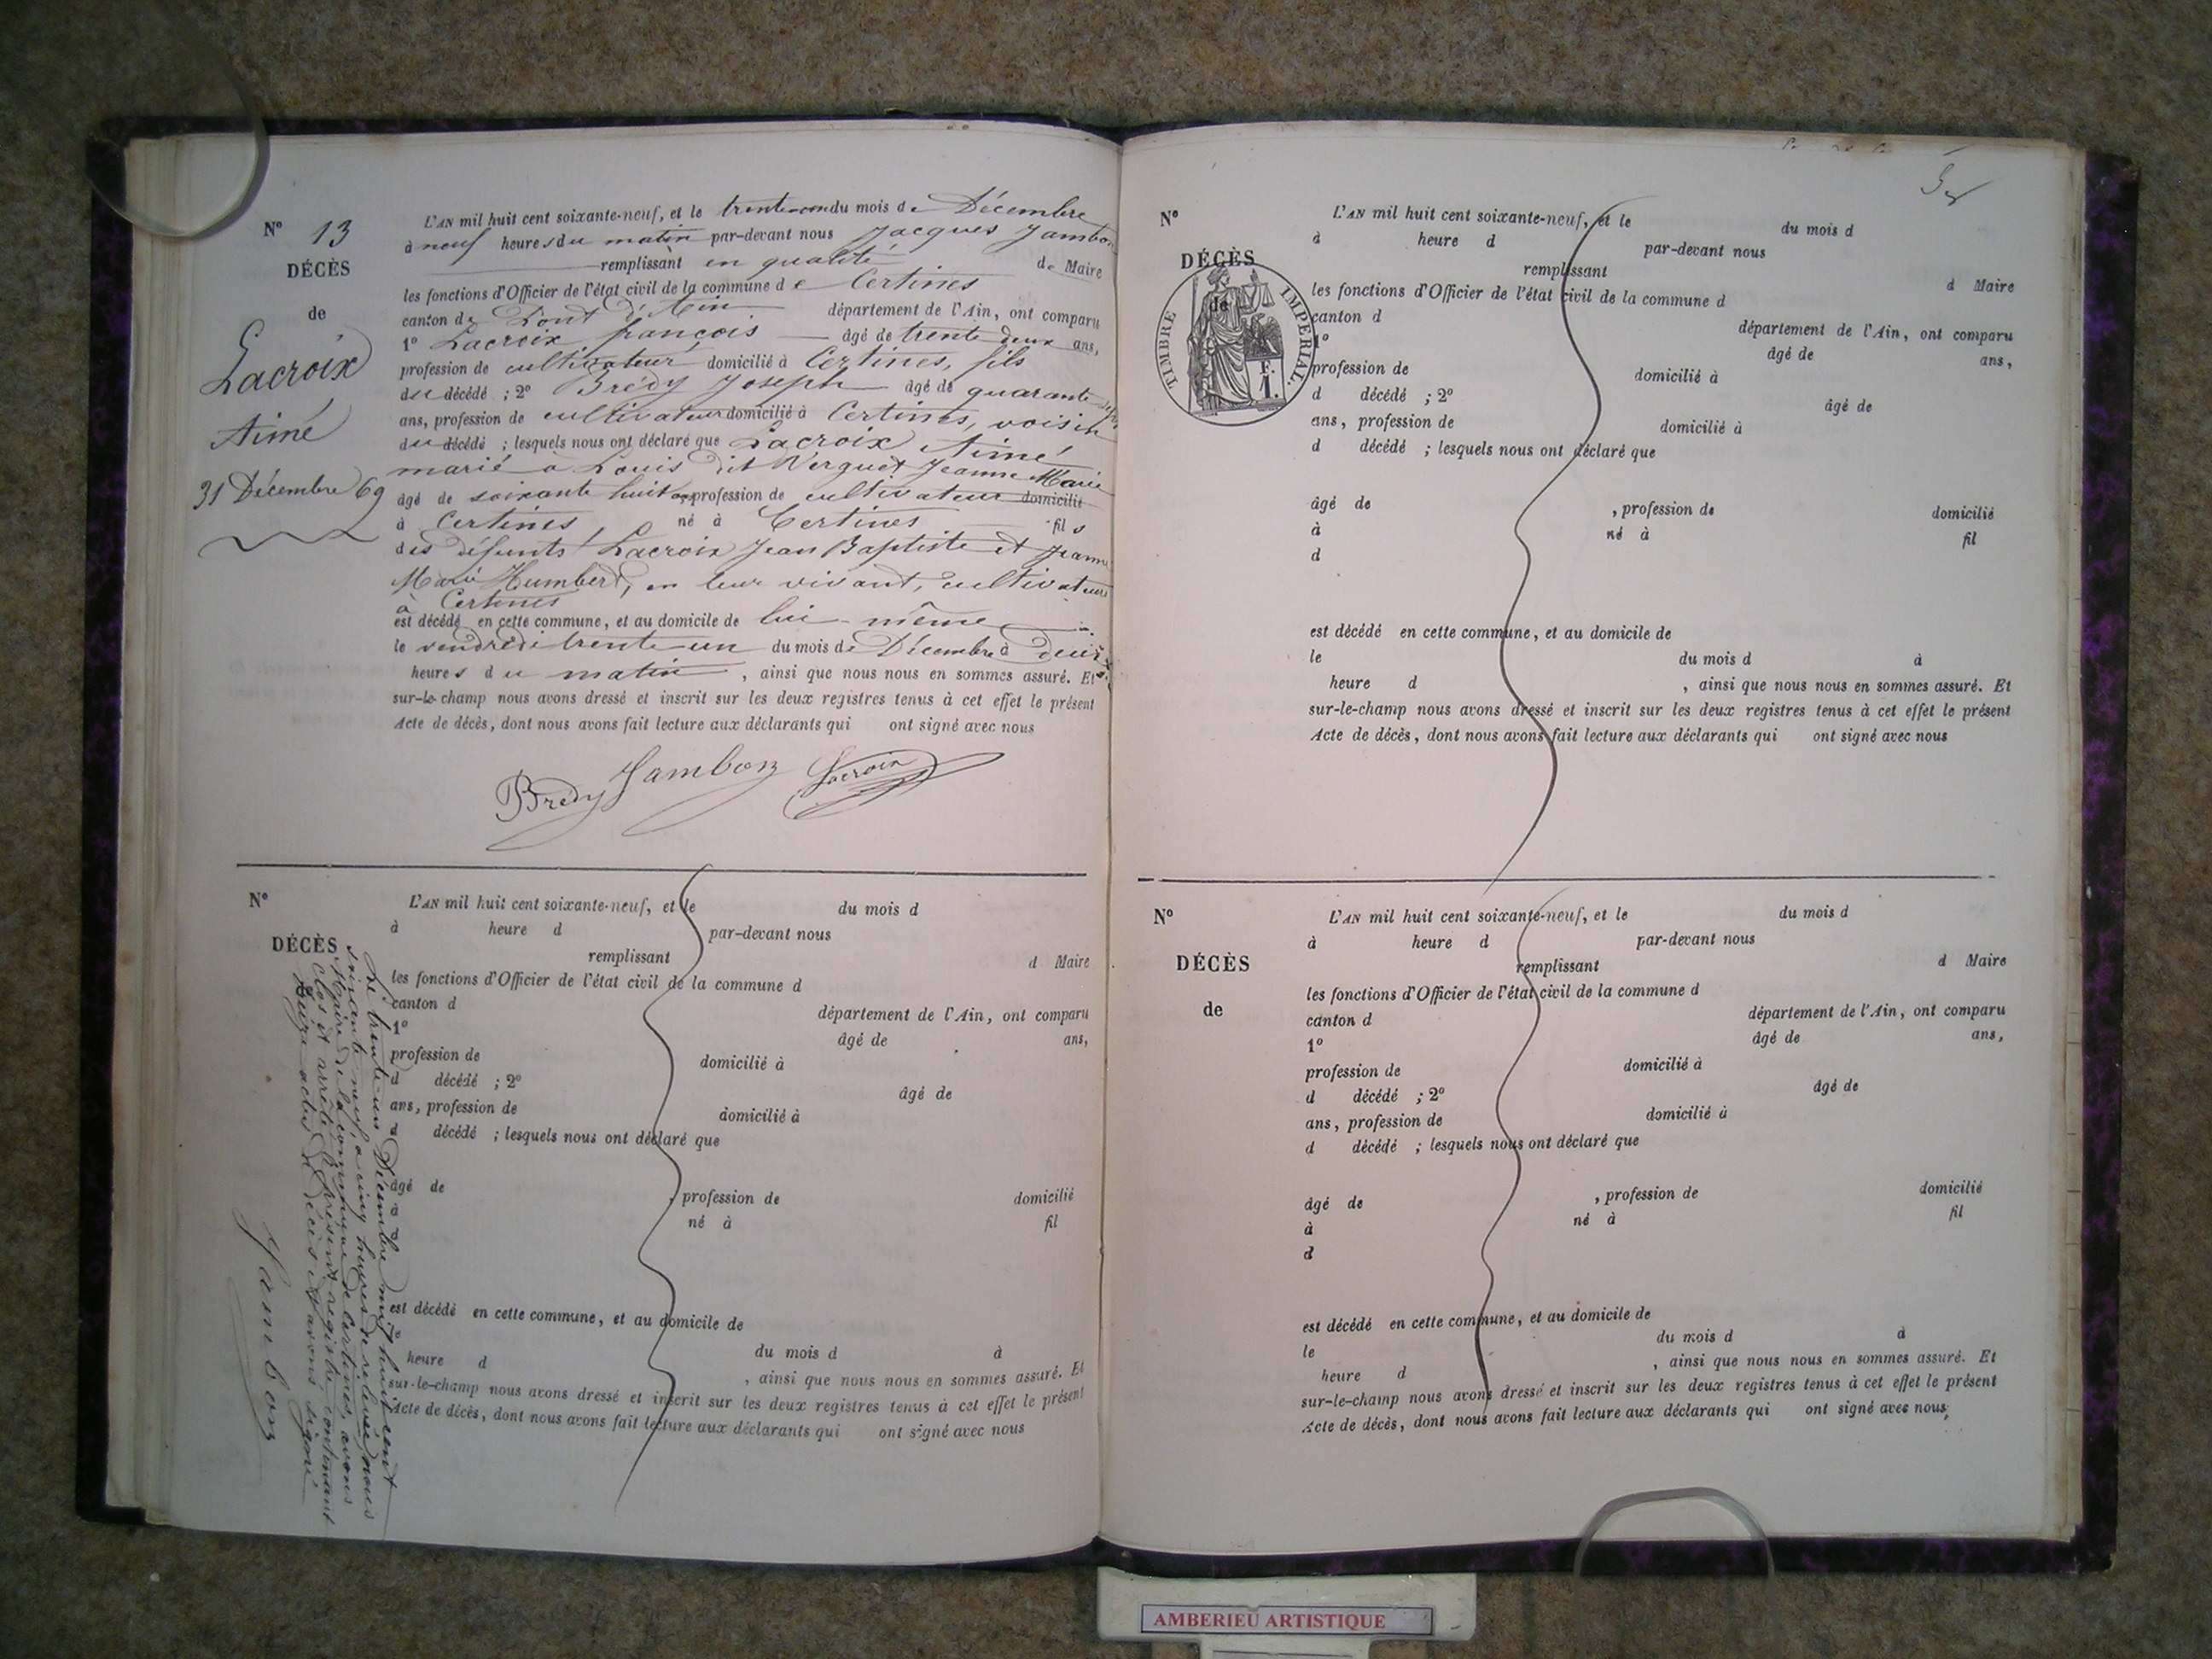 N° 13
DÉCÈS
de
Lacroix
Aimé
31 Décembre 69
L'AN mil huit cent soixante-neuf, et le trente-un du mois de Décembre
à neuf heures du matin par-devant nous Jacques Jambon
remplissant en qualité de Maire
les fonctions d'Officier de l'état civil de la commune de Certines
canton de Pont d'Ain département de l'Ain, ont comparu
1° Lacroix françois âgé de trente deux ans,
profession de cultivateur domicilié à Certines, fils
du décédé ; 2° Brédy Joseph âgé de quarante
ans, profession de cultivateur domicilié à Certines, voisin
du décédé ; lesquels nous ont déclaré que Lacroix Aimé
marié à Louis dit Verguet Jeanne Marie
âgé de soixante huit ans profession de cultivateur domicilié
à Certines, né à Certines fils
des défunts Lacroix Jean Baptiste et Jeanne
Marie Humbert, en leur vivant, cultivateurs
à Certines
est décédé en cette commune, et au domicile de lui-même
le vendredi trente-un du mois de Décembre à deux
heures du matin, ainsi que nous nous en sommes assuré. Et
sur-le-champ nous avons dressé et inscrit sur les deux registres tenus à cet effet le présent
Acte de décès, dont nous avons fait lecture aux déclarants qui ont signé avec nous
Brédy Jambon Lacroix
N°
DÉCÈS
L'AN mil huit cent soixante-neuf, et le du mois d
à heure d par-devant nous
remplissant d Maire
les fonctions d'Officier de l'état civil de la commune d
canton d département de l'Ain, ont comparu
1° âgé de ans,
profession de domicilié à
d décédé ; 2° âgé de
ans, profession de domicilié à
d décédé ; lesquels nous ont déclaré que
âgé de , profession de domicilié
à né à fil
d
est décédé en cette commune, et au domicile de
le du mois d à
heure d , ainsi que nous nous en sommes assuré. Et
sur-le-champ nous avons dressé et inscrit sur les deux registres tenus à cet effet le présent
Acte de décès, dont nous avons fait lecture aux déclarants qui ont signé avec nous
Le trente-un Décembre mil huit cent
soixante neuf, à cinq heures de relevée nous
Maire de la commune de Certines, avons
clos et arrêté le présent registre contenant
treize actes de décès et avons signé
Jambon
N°
DÉCÈS
de
TIMBRE IMPERIAL.
L'AN mil huit cent soixante-neuf, et le du mois d
à heure d par-devant nous
remplissant d Maire
les fonctions d'Officier de l'état civil de la commune d
canton d département de l'Ain, ont comparu
1° âgé de ans,
profession de domicilié à
d décédé ; 2° âgé de
ans, profession de domicilié à
d décédé ; lesquels nous ont déclaré que
âgé de , profession de domicilié
à né à fil
d
est décédé en cette commune, et au domicile de
le du mois d à
heure d , ainsi que nous nous en sommes assuré. Et
sur-le-champ nous avons dressé et inscrit sur les deux registres tenus à cet effet le présent
Acte de décès, dont nous avons fait lecture aux déclarants qui ont signé avec nous
N°
DÉCÈS
de
L'AN mil huit cent soixante-neuf, et le du mois d
à heure d par-devant nous
remplissant d Maire
les fonctions d'Officier de l'état civil de la commune d
canton d département de l'Ain, ont comparu
1° âgé de ans,
profession de domicilié à
d décédé ; 2° âgé de
ans, profession de domicilié à
d décédé ; lesquels nous ont déclaré que
âgé de , profession de domicilié
à né à fil
d
est décédé en cette commune, et au domicile de
le du mois d à
heure d , ainsi que nous nous en sommes assuré. Et
sur-le-champ nous avons dressé et inscrit sur les deux registres tenus à cet effet le présent
Acte de décès, dont nous avons fait lecture aux déclarants qui ont signé avec nous
AMBERIEU ARTISTIQUE